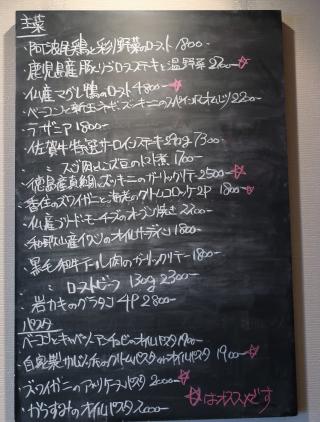 主菜
・阿波尾鶏と彩り野菜のロースト 1800-
・鹿児島産豚 ロースステーキと温野菜 2200-☆
・仙産マグレ鴨のロースト 4800-☆
・ベーコンと新玉ネギ、ズッキーニのスペイン オムレツ 2200-
・ラザニア 1800-
・佐賀牛特選サーロインステーキ 7300-
・〃 スジ肉と 豆のトマト煮 1700-
・徳島産真鯛 ズッキーニのガーリックソテー 2500-☆
・香住のズワイガニと海老のクリームコロッケ2P 1800-☆
・仙産ブリー・ド・モーのオーブン焼き 2200-
・和歌山産イワシのオイルサーディン 1800-
・黒毛和牛テール肉のガーリックソテー 1800-
・〃 ローストビーフ 130g 2300-
・岩カキのグラタン 4P 2800-
パスタ
・ベーコンとキャベツ、アンチョビのオイルパスタ 1900-
・自家製 のクリームパスタ オイルパスタ 1900-☆
・ズワイガニのアメリケーヌパスタ 2000-☆
・からすみのオイルパスタ 2000-
☆はオススメです